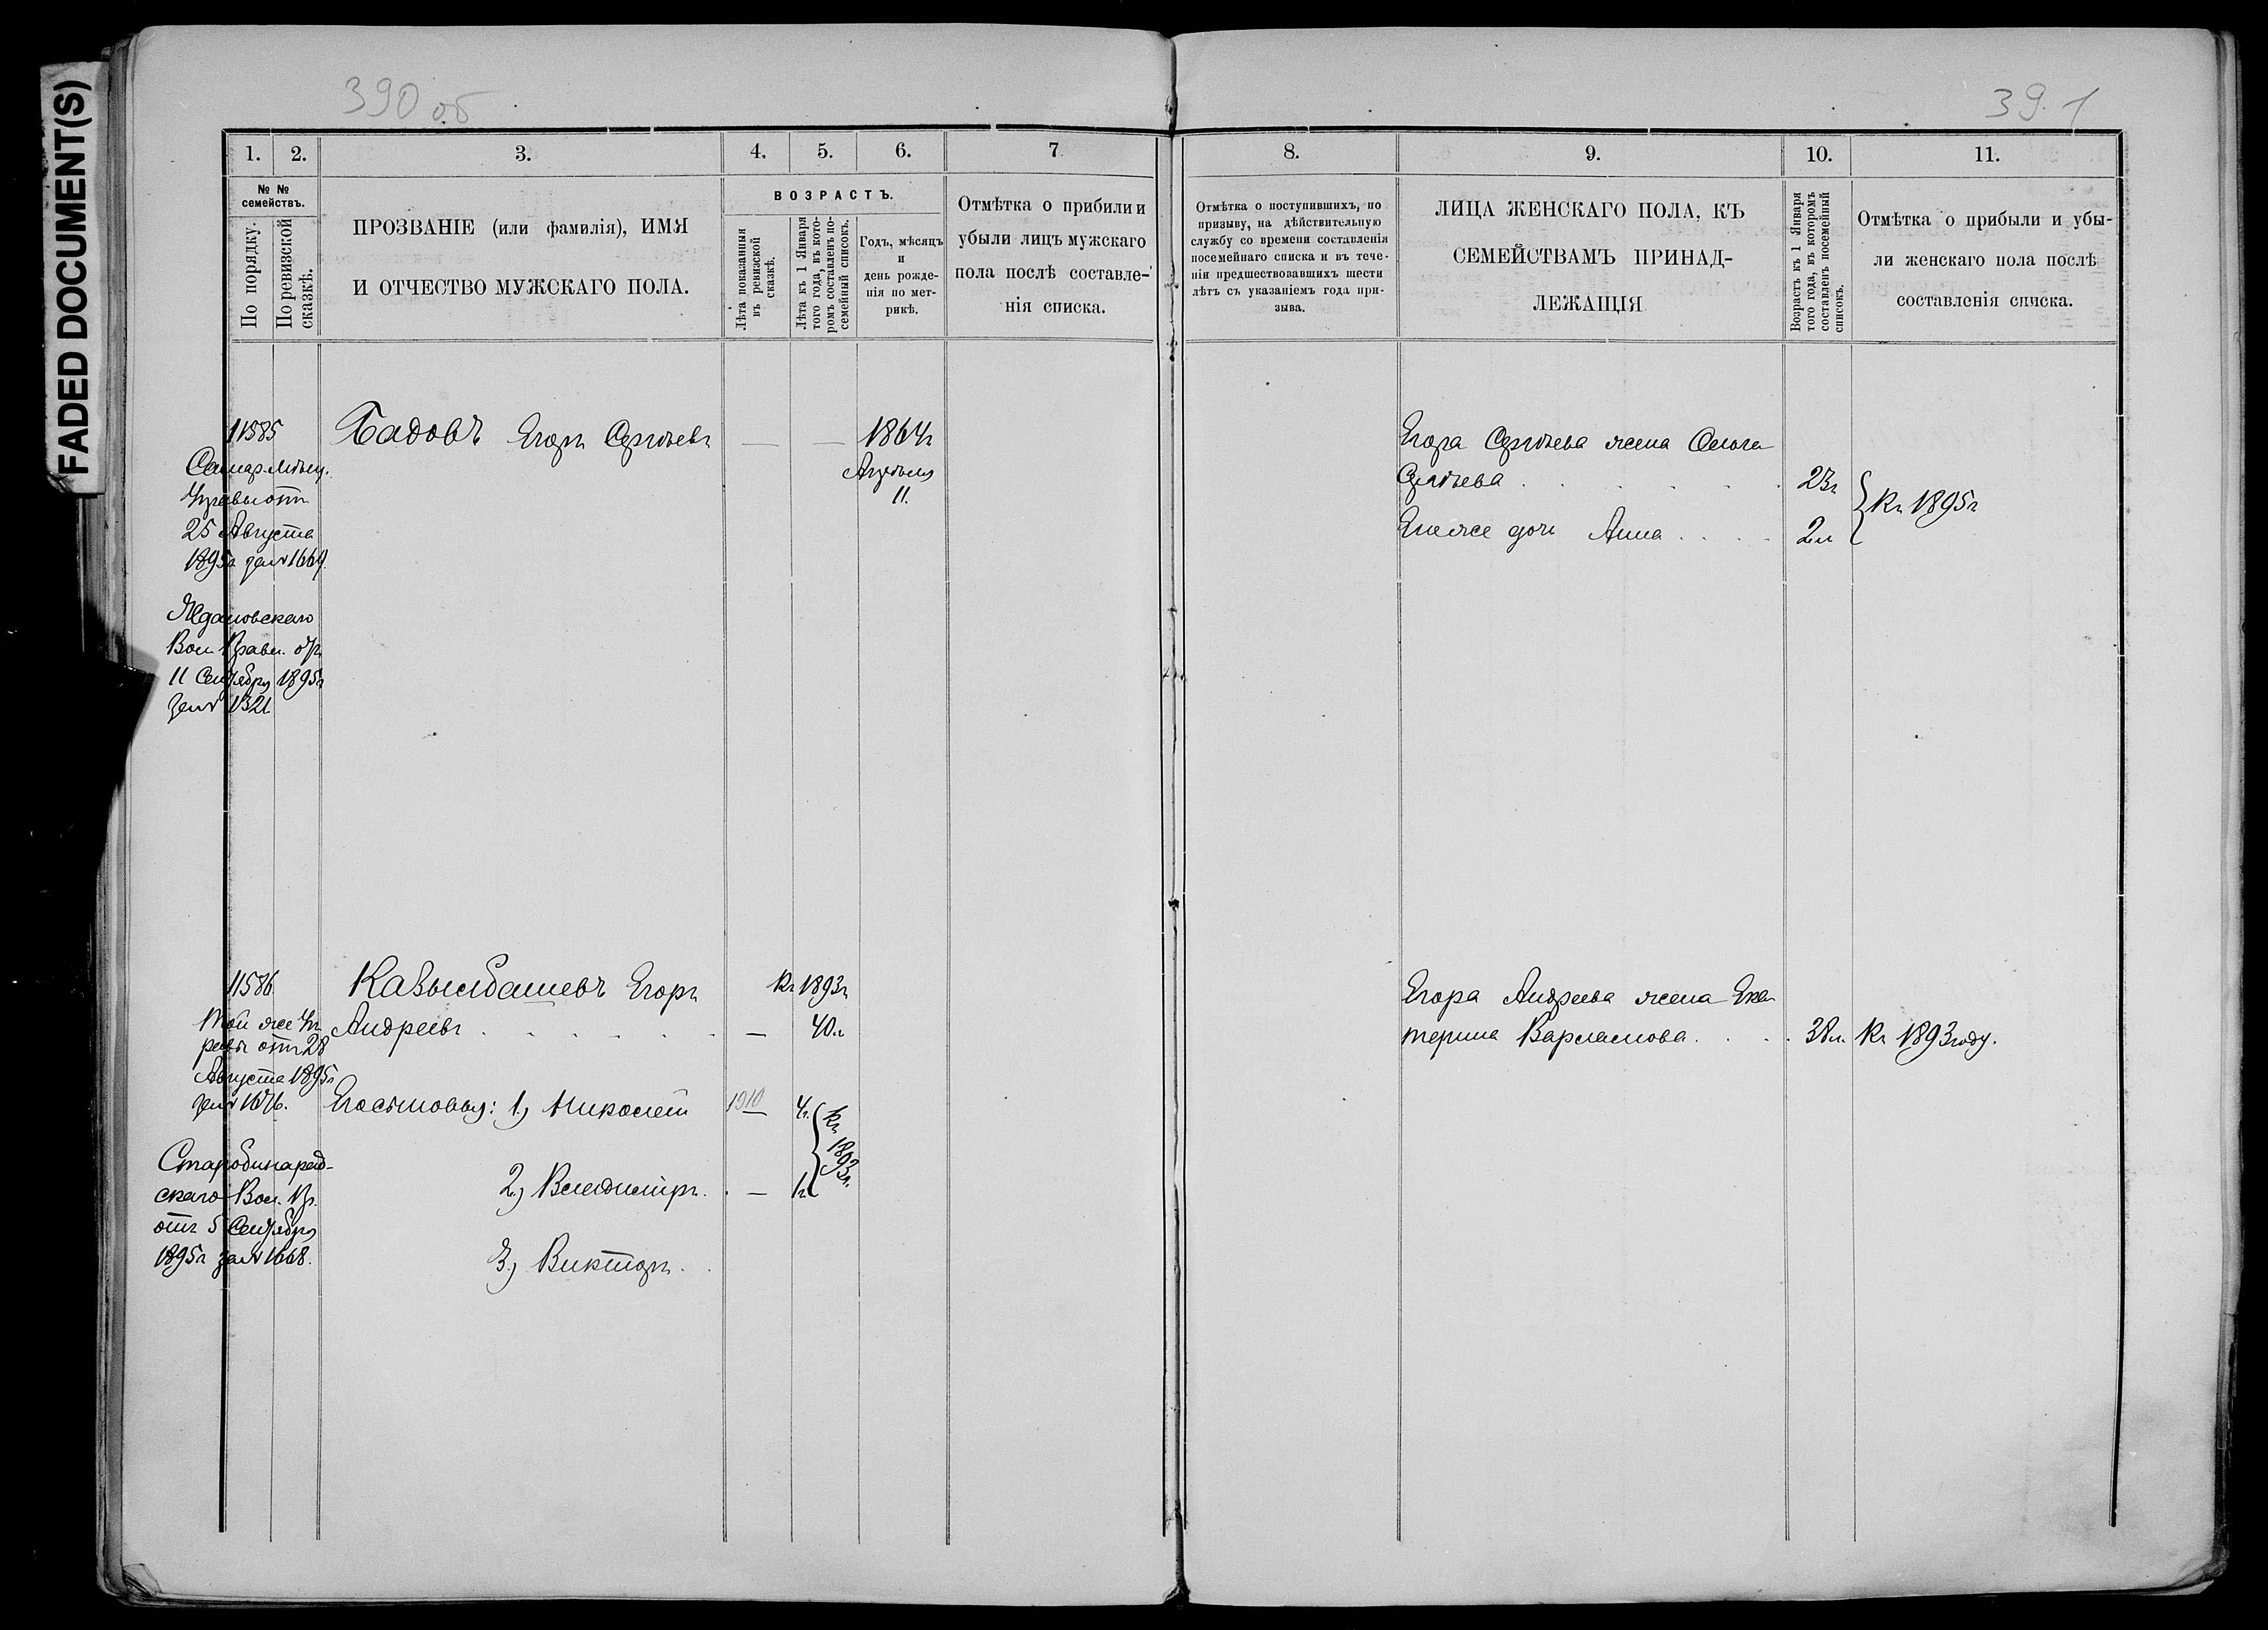 FADED DOCUMENT(S)
390 об
391
1.
2.
3.
4.
5.
6.
7
№ №
семействъ.
По порядку.
По ревизской
сказкѣ.
ПРОЗВАНІЕ (или фамилія), ИМЯ
И ОТЧЕСТВО МУЖСКАГО ПОЛА.
ВОЗРАСТЪ.
Лѣта показанныя
въ ревизской
сказкѣ.
Лѣта къ 1 Января
того года, въ кото-
ромъ составленъ по-
семейный списокъ.
Годъ, мѣсяцъ
и
день рожде-
нія по мет-
рикѣ.
Отмѣтка о прибили и
убыли лицъ мужскаго
пола послѣ составле-
нія списка.
8.
9.
10.
11.
Отмѣтка о поступившихъ, по
призыву, на дѣйствительную
службу со времени составленія
посемейнаго списка и въ тече-
ніи предшествовавшихъ шести
лѣтъ съ указаніемъ года при-
зыва.
ЛИЦА ЖЕНСКАГО ПОЛА, КЪ
СЕМЕЙСТВАМЪ ПРИНАД-
ЛЕЖАЩІЯ
Возрастъ къ 1 Января
того года, въ которомъ
составленъ посемейный
списокъ.
Отмѣтка о прибыли и убы-
ли женскаго пола послѣ
составленія списка.
11585
Бадовъ Егоръ Сергѣевъ — — 1864г
Апрѣля
11.
Самар. Мѣщ.
Управы отъ
25 Августа
1895г за № 1669.
Вол. Правл. отъ
11 Сентября 1895г
за № 1321
Егора Сергѣева жена Ольга
Сергѣева . . . . . 23г
Ихъ же дочь Анна . . . . 2л
къ 1895г
11586
Той же Уп
равы отъ 28
Августа 1895г
за № 1676.
скаго Вол. Пр.
отъ 5 Сентября
1895г за № 1668.
Егоръ къ 1893г
Андреевъ . . . . . — 40л
Его сыновья: 1) Николай 1910 — 4г.
2) Владиміръ. — 1г
къ 1893г.
3) Викторъ.
Егора Андреева жена Ека
терина Варламова. . . . 38л. Къ 1893 году.